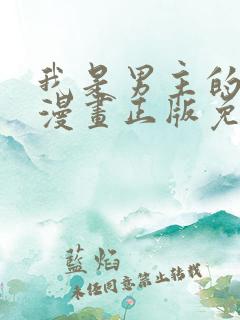 我是男主的
漫畫正版免
藍焰
未经同意禁止转载